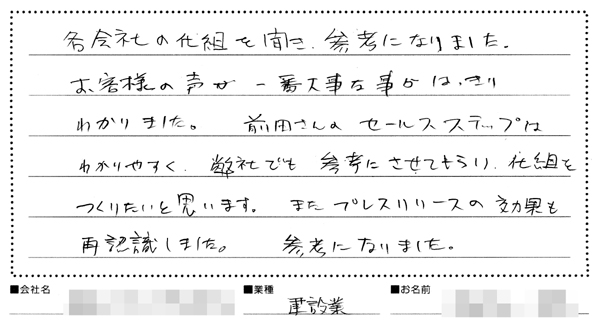 各会社の仕組を聞き、参考になりました。
お客様の声が一番大事な事がはっきり
わかりました。 前田さんの セールスステップは
わかりやすく、弊社でも 参考にさせてもらい、仕組を
つくりたいと思います。 また プレスリリースの 効果も
再認識しました。 参考になりました。
■会社名 ■業種 建設業 ■お名前